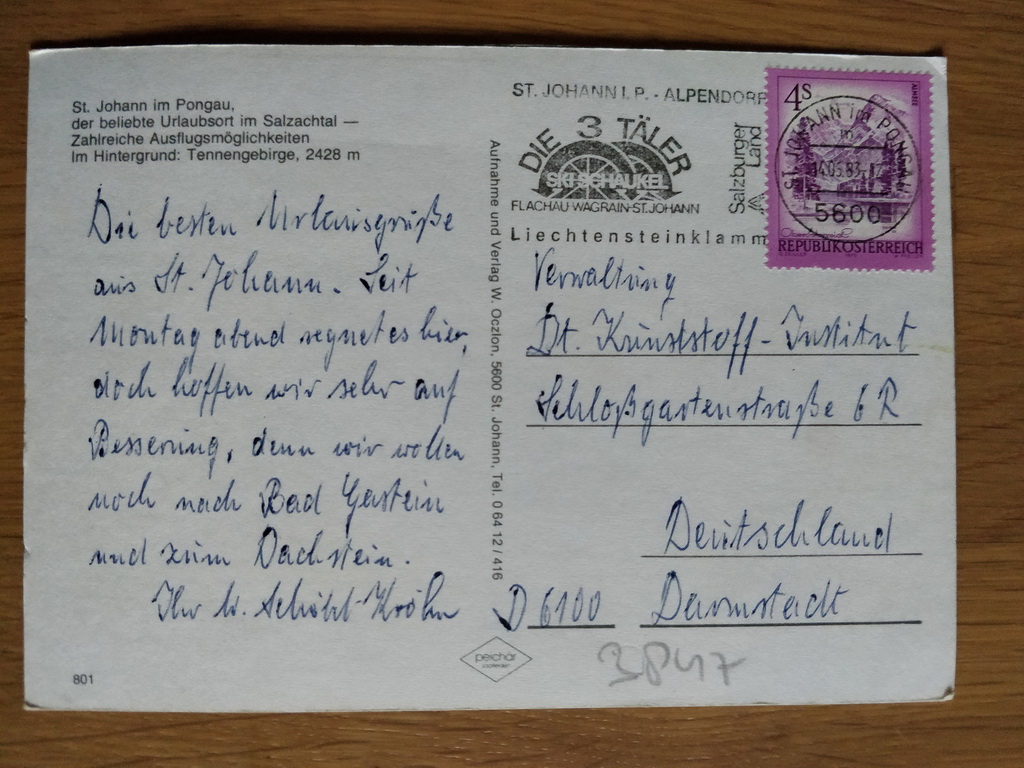 St. Johann im Pongau,
der beliebte Urlaubsort im Salzachtal —
Zahlreiche Ausflugsmöglichkeiten
Im Hintergrund: Tennengebirge, 2428 m
Die besten Urlaubsgrüße
aus St. Johann. Seit
Montag abend regnet es hier,
doch hoffen wir sehr auf
Besserung, denn wir wollen
noch nach Bad Gastein
und zum Dachstein.
Ihr
801
Aufnahme und Verlag W. Oczlon, 5600 St. Johann, Tel. 0 64 12 / 416
peichär
ST. JOHANN I. P. - ALPENDORF
DIE 3 TÄLER
SKI-SCHAUKEL
FLACHAU-WAGRAIN-ST.JOHANN
Liechtensteinklamm
Salzburger
Land
4S
ALMSEE
ST. JOHANN IM PONGAU
5600
REPUBLIK ÖSTERREICH
Verwaltung
Dt. Kunststoff-Institut
Schloßgartenstraße 6 R
Deutschland
D 6100 Darmstadt
3847